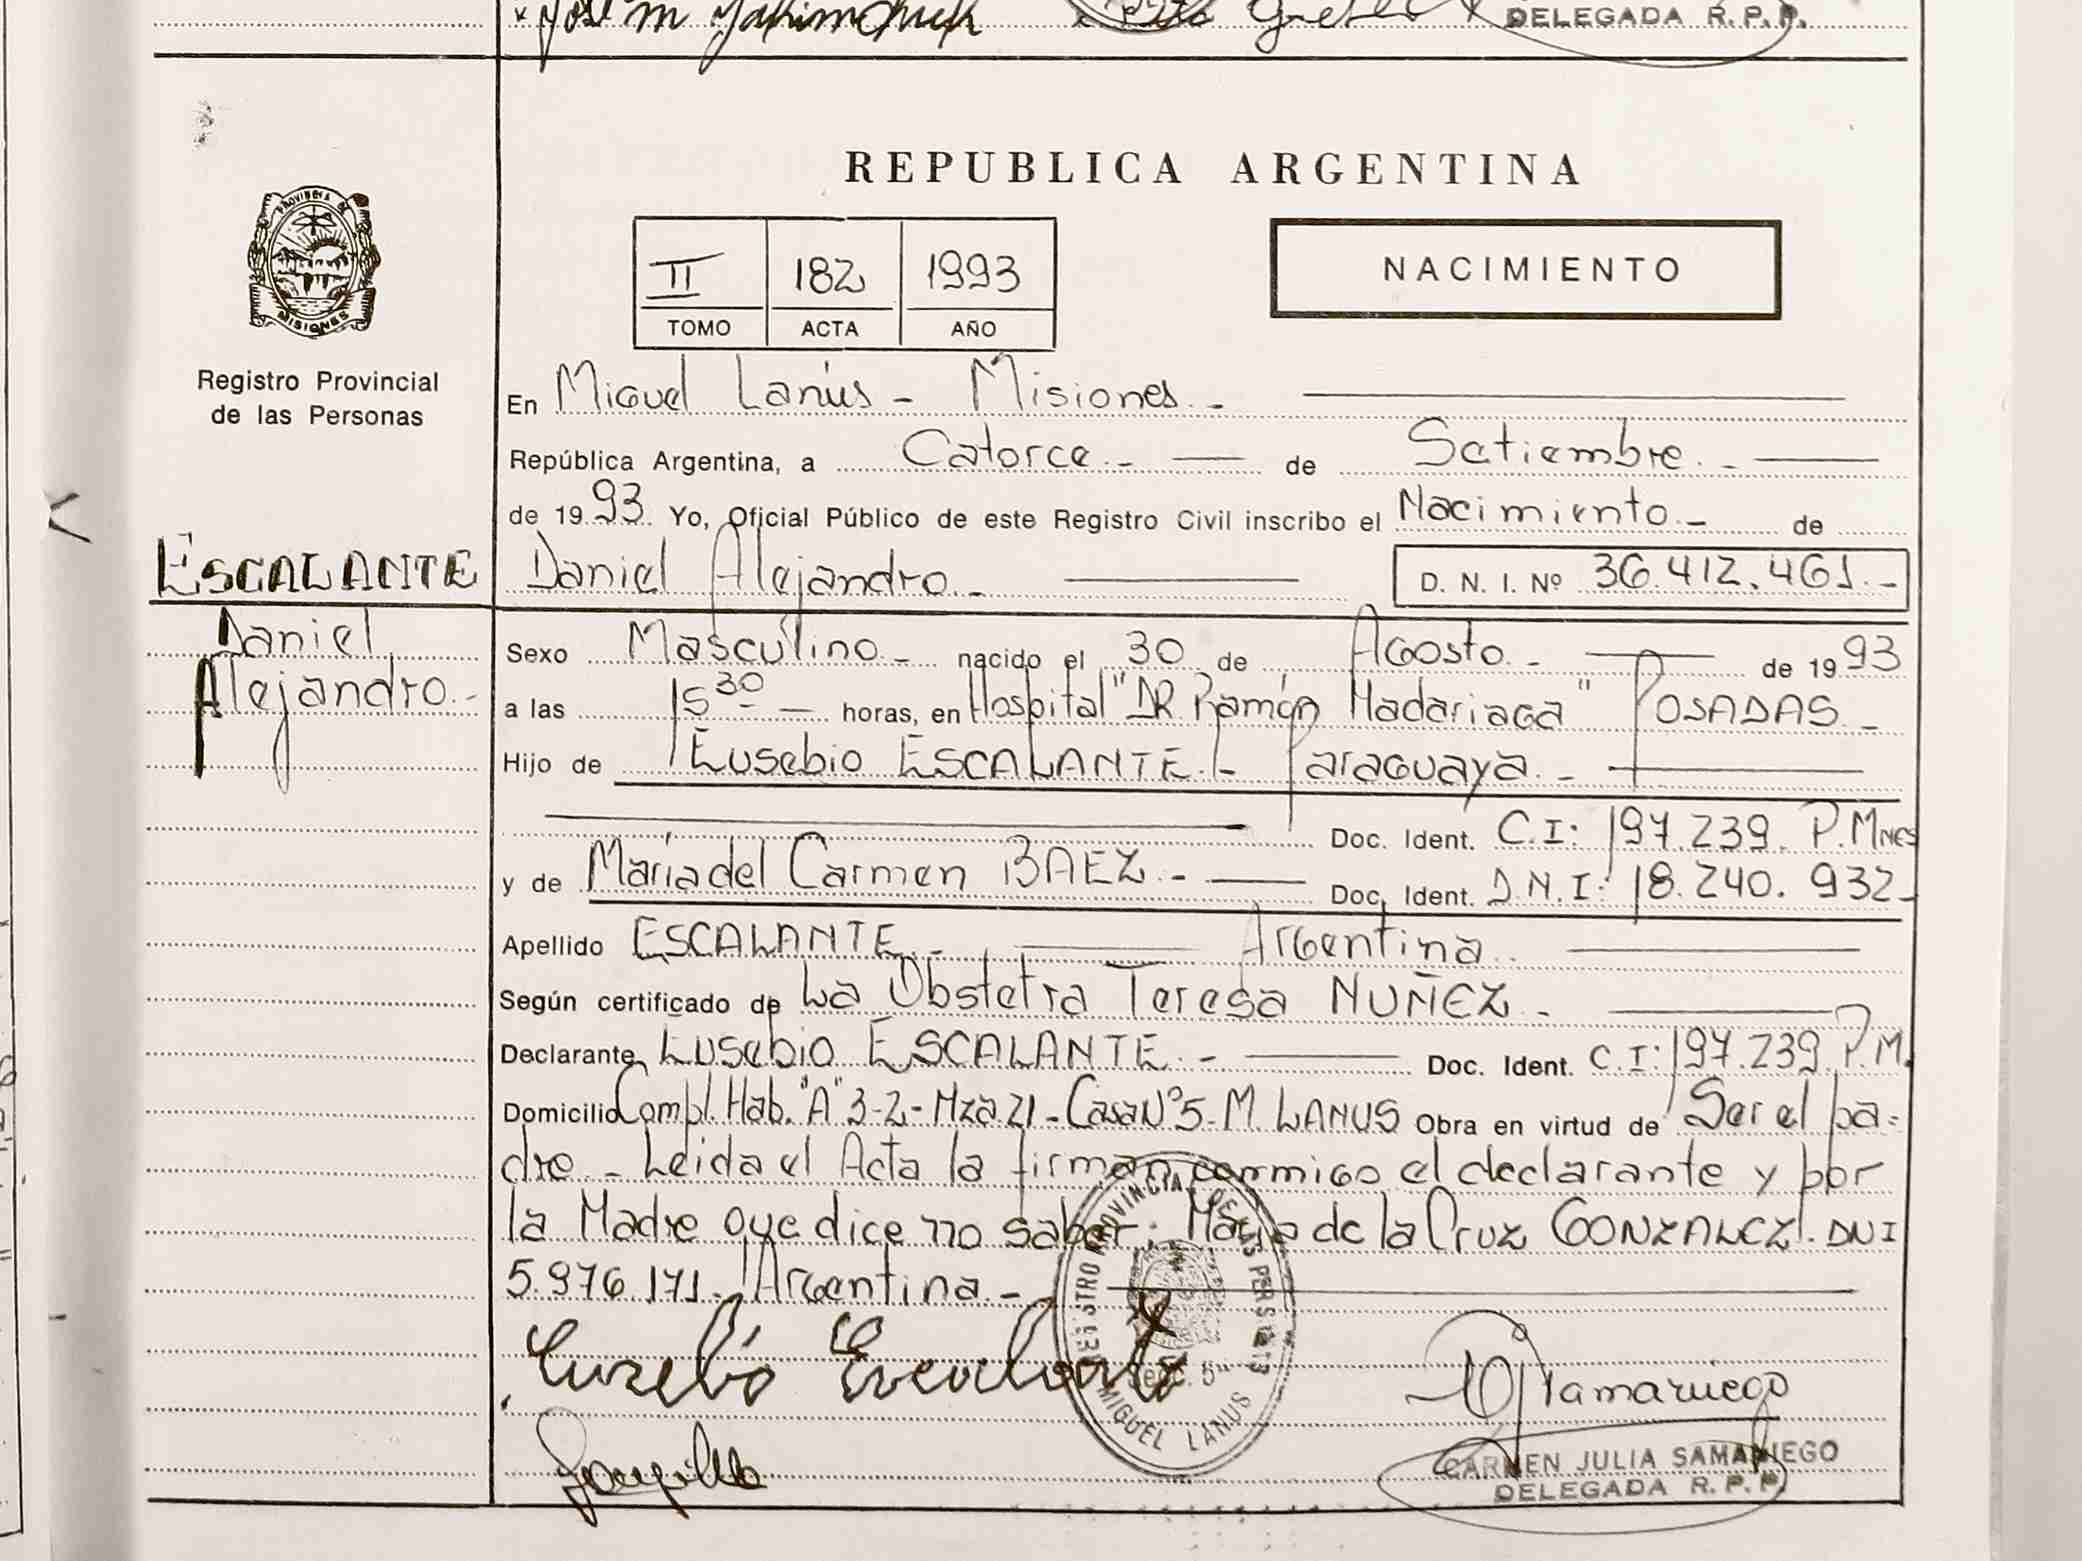 DELEGADA R. P. P.
PROVINCIA DE
MISIONES
Registro Provincial
de las Personas
ESCALANTE
Daniel
Alejandro.-
REPUBLICA ARGENTINA
II 182 1993
TOMO ACTA AÑO
NACIMIENTO
En Miguel Lanús - Misiones.-
República Argentina, a Catorce.- de Setiembre.-
de 1993 Yo, Oficial Público de este Registro Civil inscribo el Nacimiento.- de
Daniel Alejandro.- D. N. I. Nº 36.412.461.-
Sexo Masculino.- nacido el 30 de Agosto.- de 1993
a las 15 30 horas, en Hospital "DR. Ramón Madariaga" POSADAS.-
Hijo de Eusebio ESCALANTE.- Paraguaya.-
Doc. Ident. C.I: 197.239. P.Mnes
y de María del Carmen BAEZ.- Doc. Ident. D.N.I: 18.240.932-
Apellido ESCALANTE.- Argentina.
Según certificado de La Obstetra Teresa NUÑEZ.-
Declarante Eusebio ESCALANTE.- Doc. Ident. C.I: 197.239 P.M.
Domicilio Compl. Hab. "A" 3-2- Mza.21- Casa Nº 5- M. LANUS Obra en virtud de Ser el pa-
dre.- Leida el Acta la firman conmigo el declarante y por
la Madre que dice no saber: María de la Cruz GONZALEZ. DNI
5.976.171.- Argentina.-
REGISTRO PROVINCIAL DE LAS PERSONAS
Secc. 5ª
MIGUEL LANUS
CARMEN JULIA SAMANIEGO
DELEGADA R. P. P.